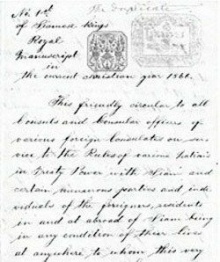 The Duplicate
No. 1st
of Siamese Kings
Royal
manuscript
in
the current christian year 1861.
This friendly circular to all
Consuls and Consular officers of
various foreign Consulates on ser-
vice to the Rulers of various Nations
in Treaty Power with Siam and
certain numerous parties and indi-
viduals of the foreigners, residents
in and at abroad of Siam being
in any condition of their lives
at anywhere to whom this very